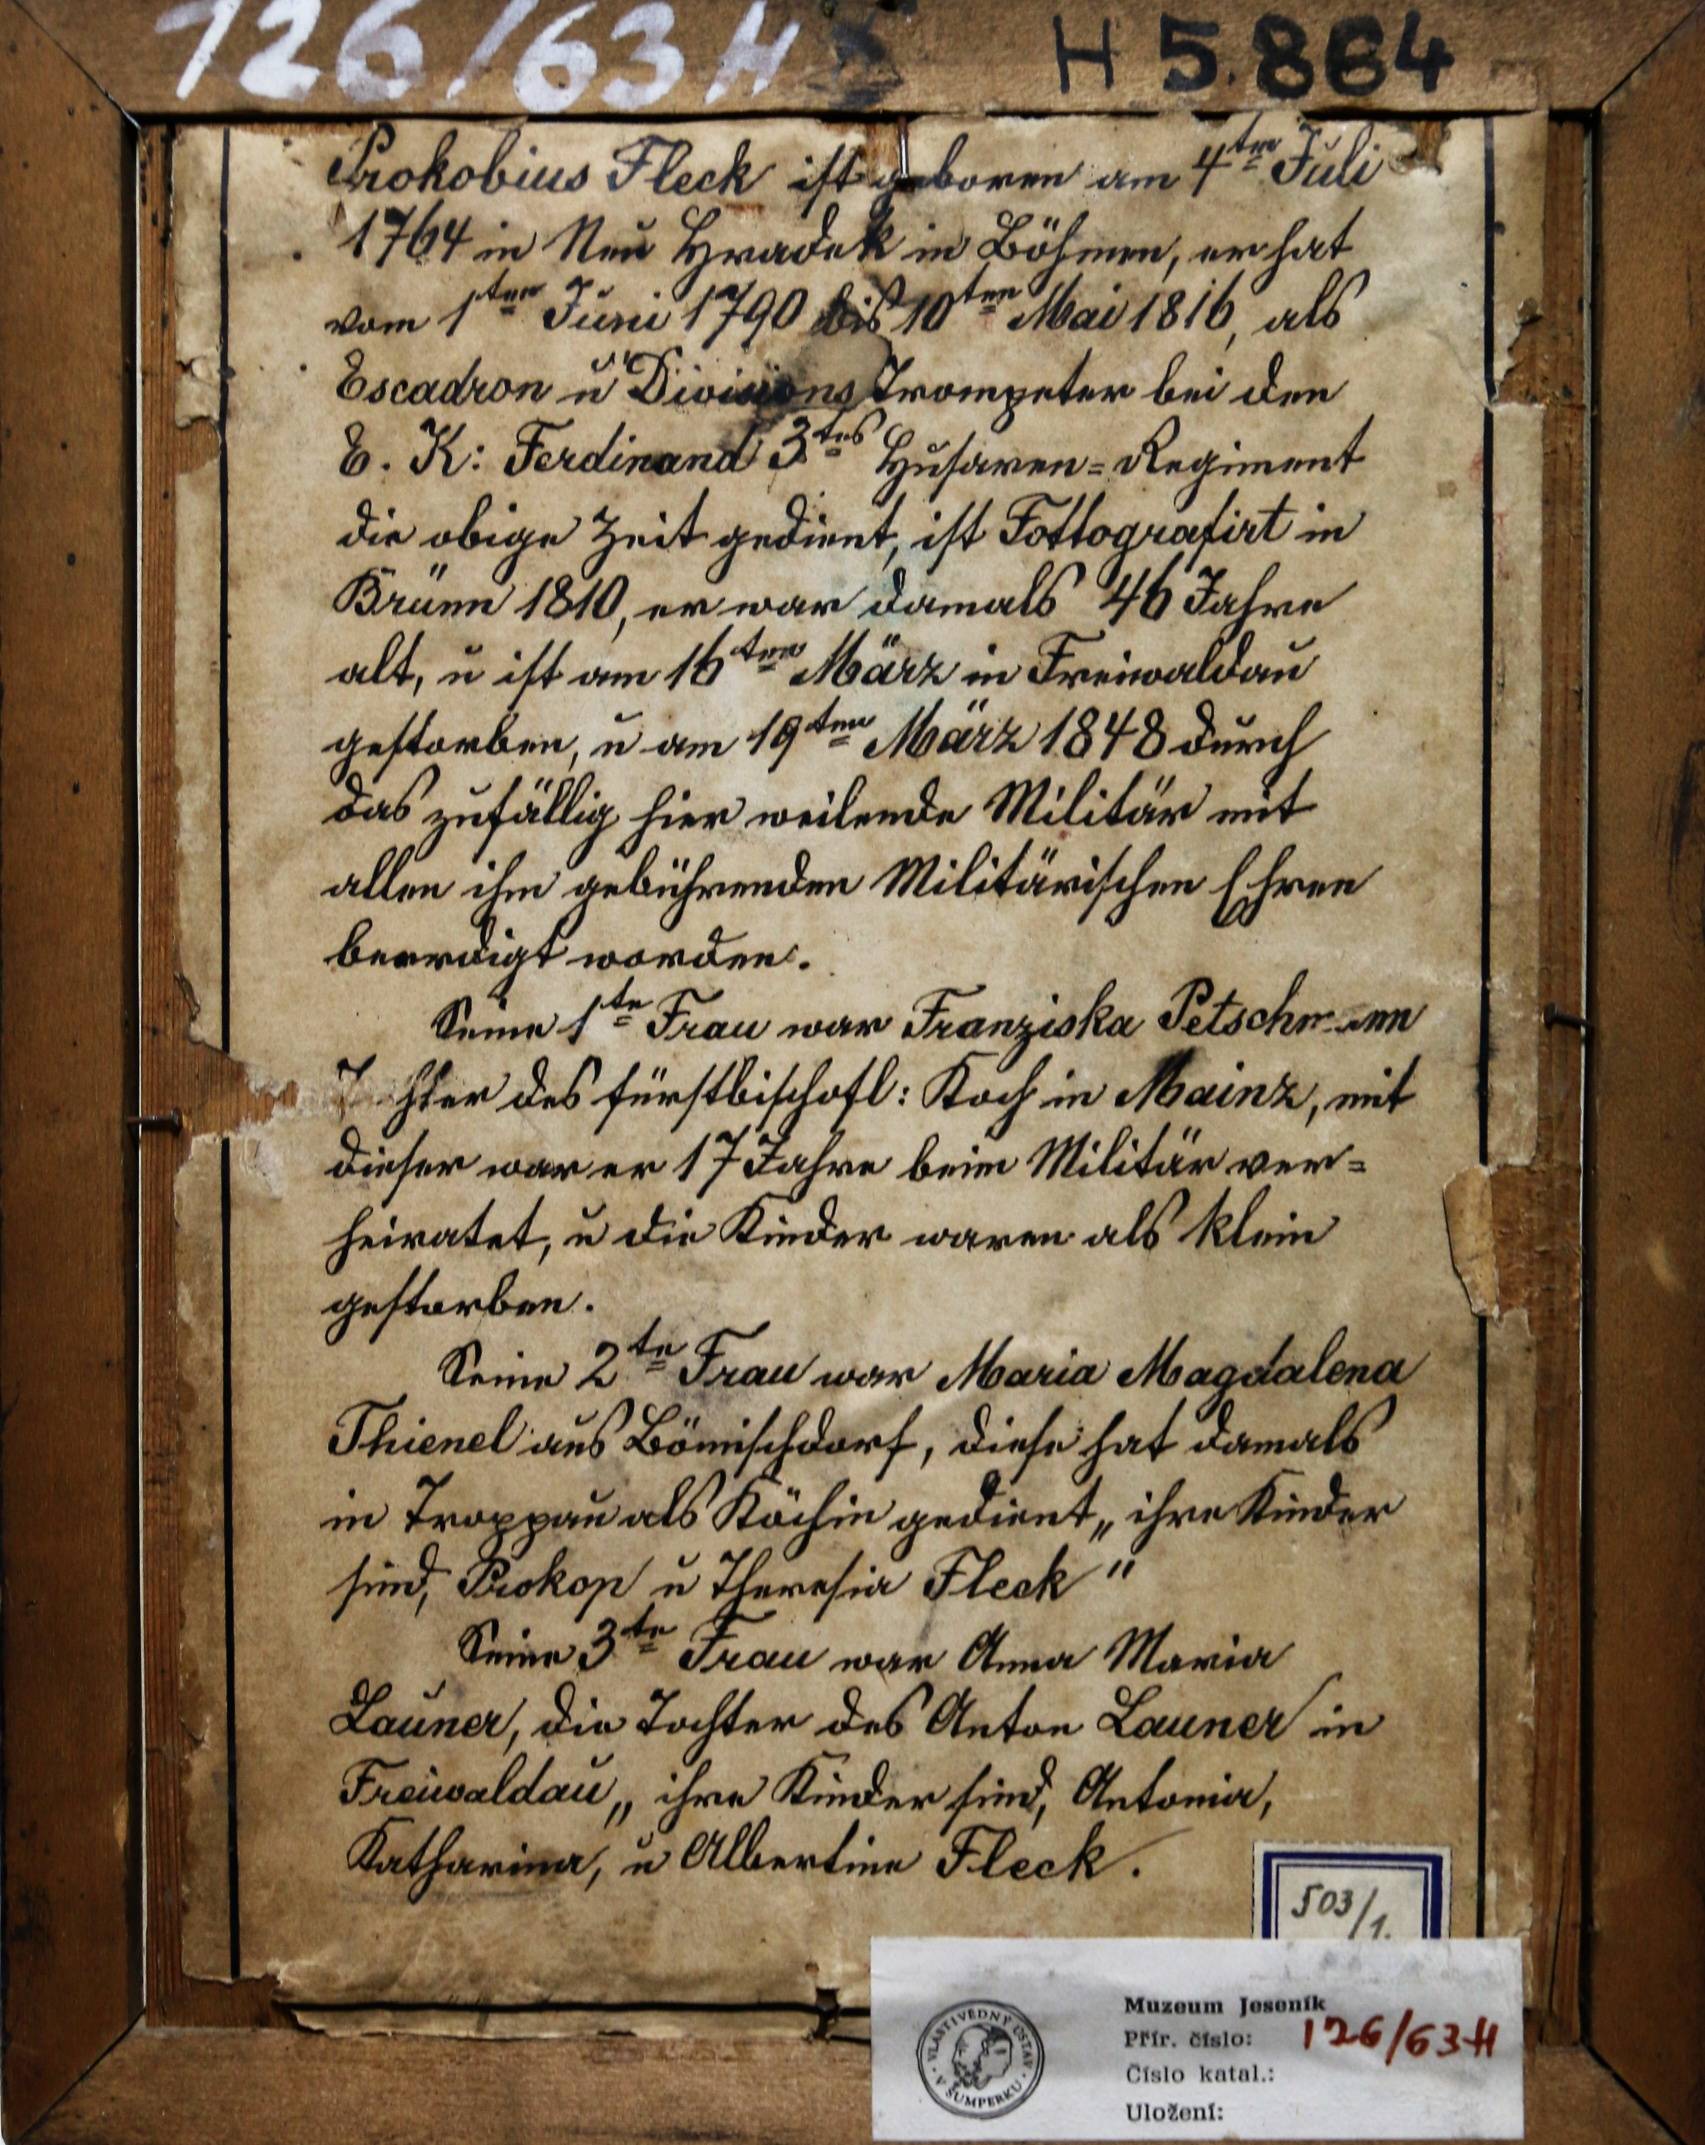 126/63 H
H 5.864
Prokobius Fleck ist geboren am 4ten Juli
1764 in Neu Hradek in Böhmen, er hat
vom 1ten Juni 1790 bis 10ten Mai 1816, als
Escadron u Divisions Trompeter bei den
E. K: Ferdinand 3tes Husaren=Regiment
die obige Zeit gedient, ist Fottografirt in
Brünn 1810, er war damals 46 Jahre
alt, u ist am 16ten März in Freiwaldau
gestorben, u am 19ten März 1848 durch
das zufällig hier weilende Militär mit
allen ihm gebührenden Militärischen Ehren
beerdigt worden.
Seine 1te Frau war Franziska
des fürstbischofl: Koch in Mainz, mit
dieser war er 17 Jahre beim Militär ver=
heiratet, u die Kinder waren als klein
gestorben.
Seine 2te Frau war Maria Magdalena
Thienel aus Bömischdorf, diese hat damals
in Troppau als Köchin gedient„ ihre Kinder
sind, Prokop u Theresia Fleck"
Seine 3te Frau war Anna Maria
Launer, die Tochter des Anton Launer in
Freiwaldau„ ihre Kinder sind, Antonia,
Katharina, u Albertine Fleck.
503/1.
Muzeum Jeseník
Přír. číslo: 126/63H
Číslo katal.:
Uložení:
VLASTIVĚDNÝ ÚSTAV V ŠUMPERKU